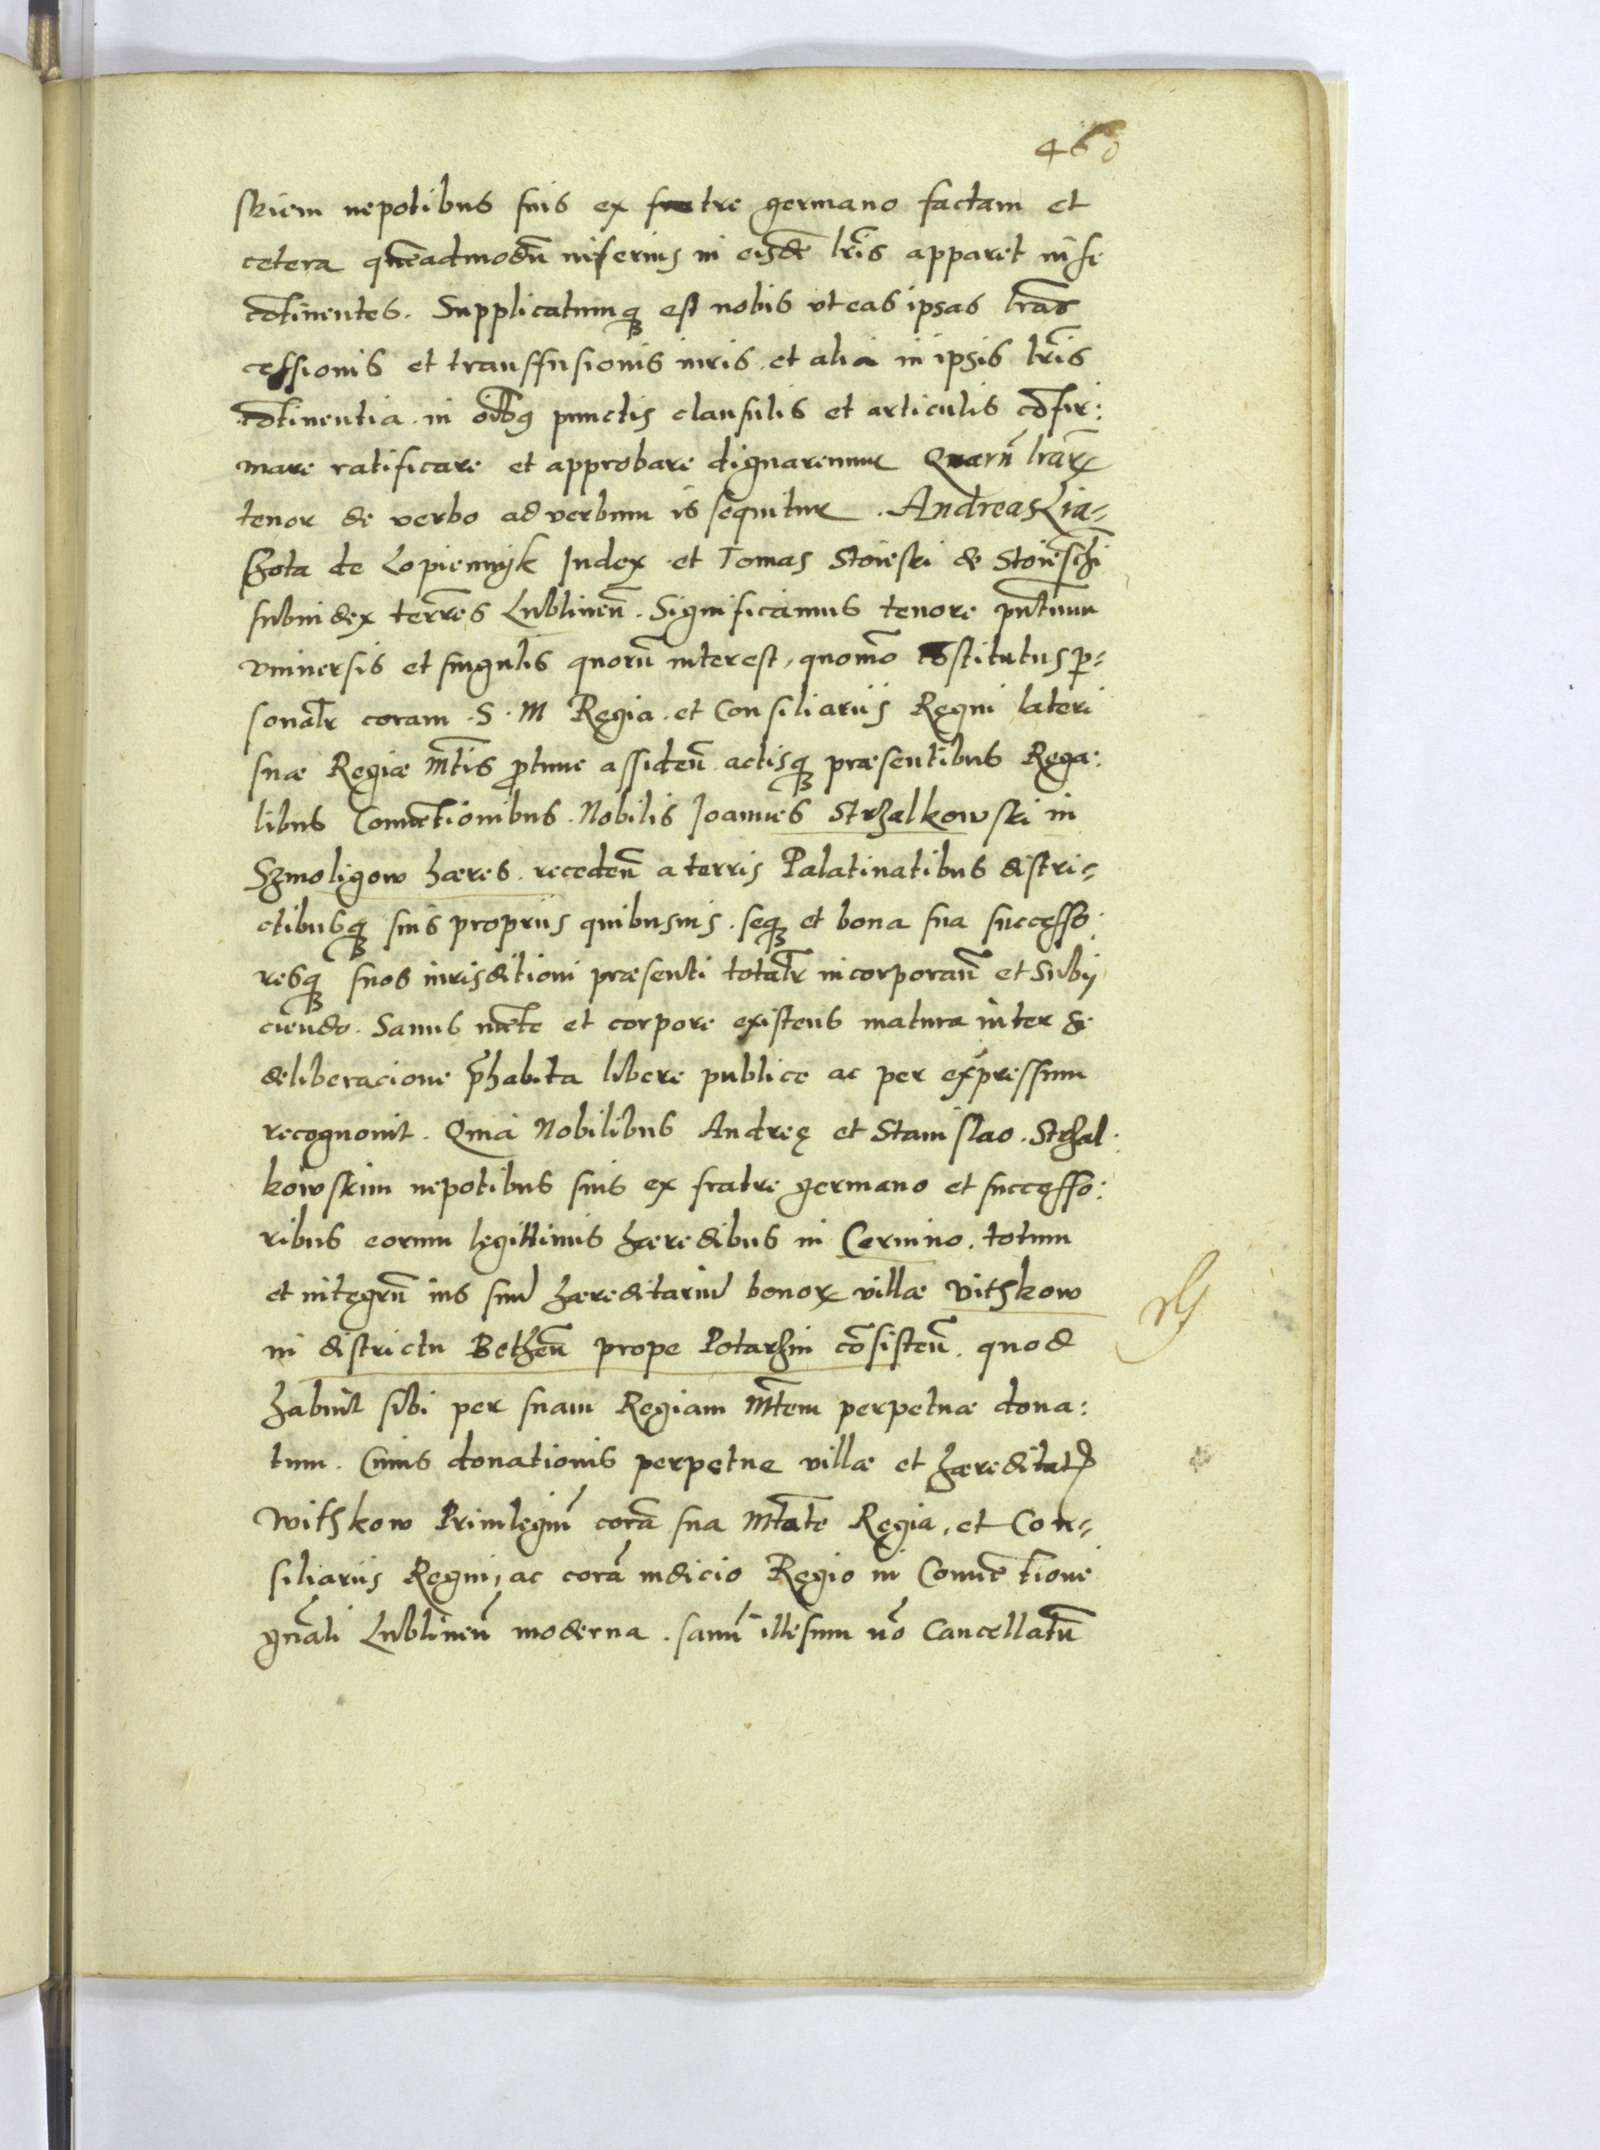 460
skiem nepotibus suis ex fratre germano factam et
cetera quēadmodū inferius in eisdē lr̄is apparet in se
cōtinentes. Supplicatumqꝫ est nobis vt eas ipsas lrās
cessionis et transfusionis iuris. et alia in ipsis lr̄is
cōtinentia. in oībꝰ punctis clausulis et articulis cōfir:
mare ratificare et approbare dignaremur Quarū lrarꝝ
tenor de verbo ad verbum is sequitur. Andreas Lia-
szota de Lopiennyk Iudex et Tomas Stoieski de Stoieschi
subiudex terrēs Lublineñ. Significamus tenore pn̄tium
vniuersis et singulis quorū interest, quomō cōstitutus per-
sonalr coram. S. M Regia. et Consiliariis Regni lateri
suæ Regiæ Mtis protunc assideñ actisqꝫ præsentibus Rega:
libus Conuētionibus. Nobilis Joannes Strzalkowski in
Szmoligow hæres. recedeñ a terris Palatinatibus distri-
ctibusqꝫ suis propriis quibusuis. seqꝫ et bona sua successo:
resqꝫ suos iurisditioni præsenti totalr incorporañ et Subij
ciendo. Sanus mēte et corpore existens matura inter se
deliberacione p̄habita libere publice ac per expressum
recognouit. Quia Nobilibus Andreę et Stanislao. Strzal:
kowskim nepotibus suis ex fratre germano et successo:
ribus eorum legittimis hæredibus in Cermino. totum
et integrū ius suū hæreditariū bonorꝝ villæ Vithkow
in districtu Belzeñ prope Potarzin cōsisteñ. quod
habuit sibi per suam Regiam Mtem perpetuæ dona:
tum. Cuius donationis perpetuæ villæ et hæreditatis
Withkow Priuilegiū corā sua Mtate Regia, et Con-
siliariis Regni, ac corā iudicio Regio in Conuētione
gn̄ali Lublineñ moderna. sanū illesum nō Cancellatū